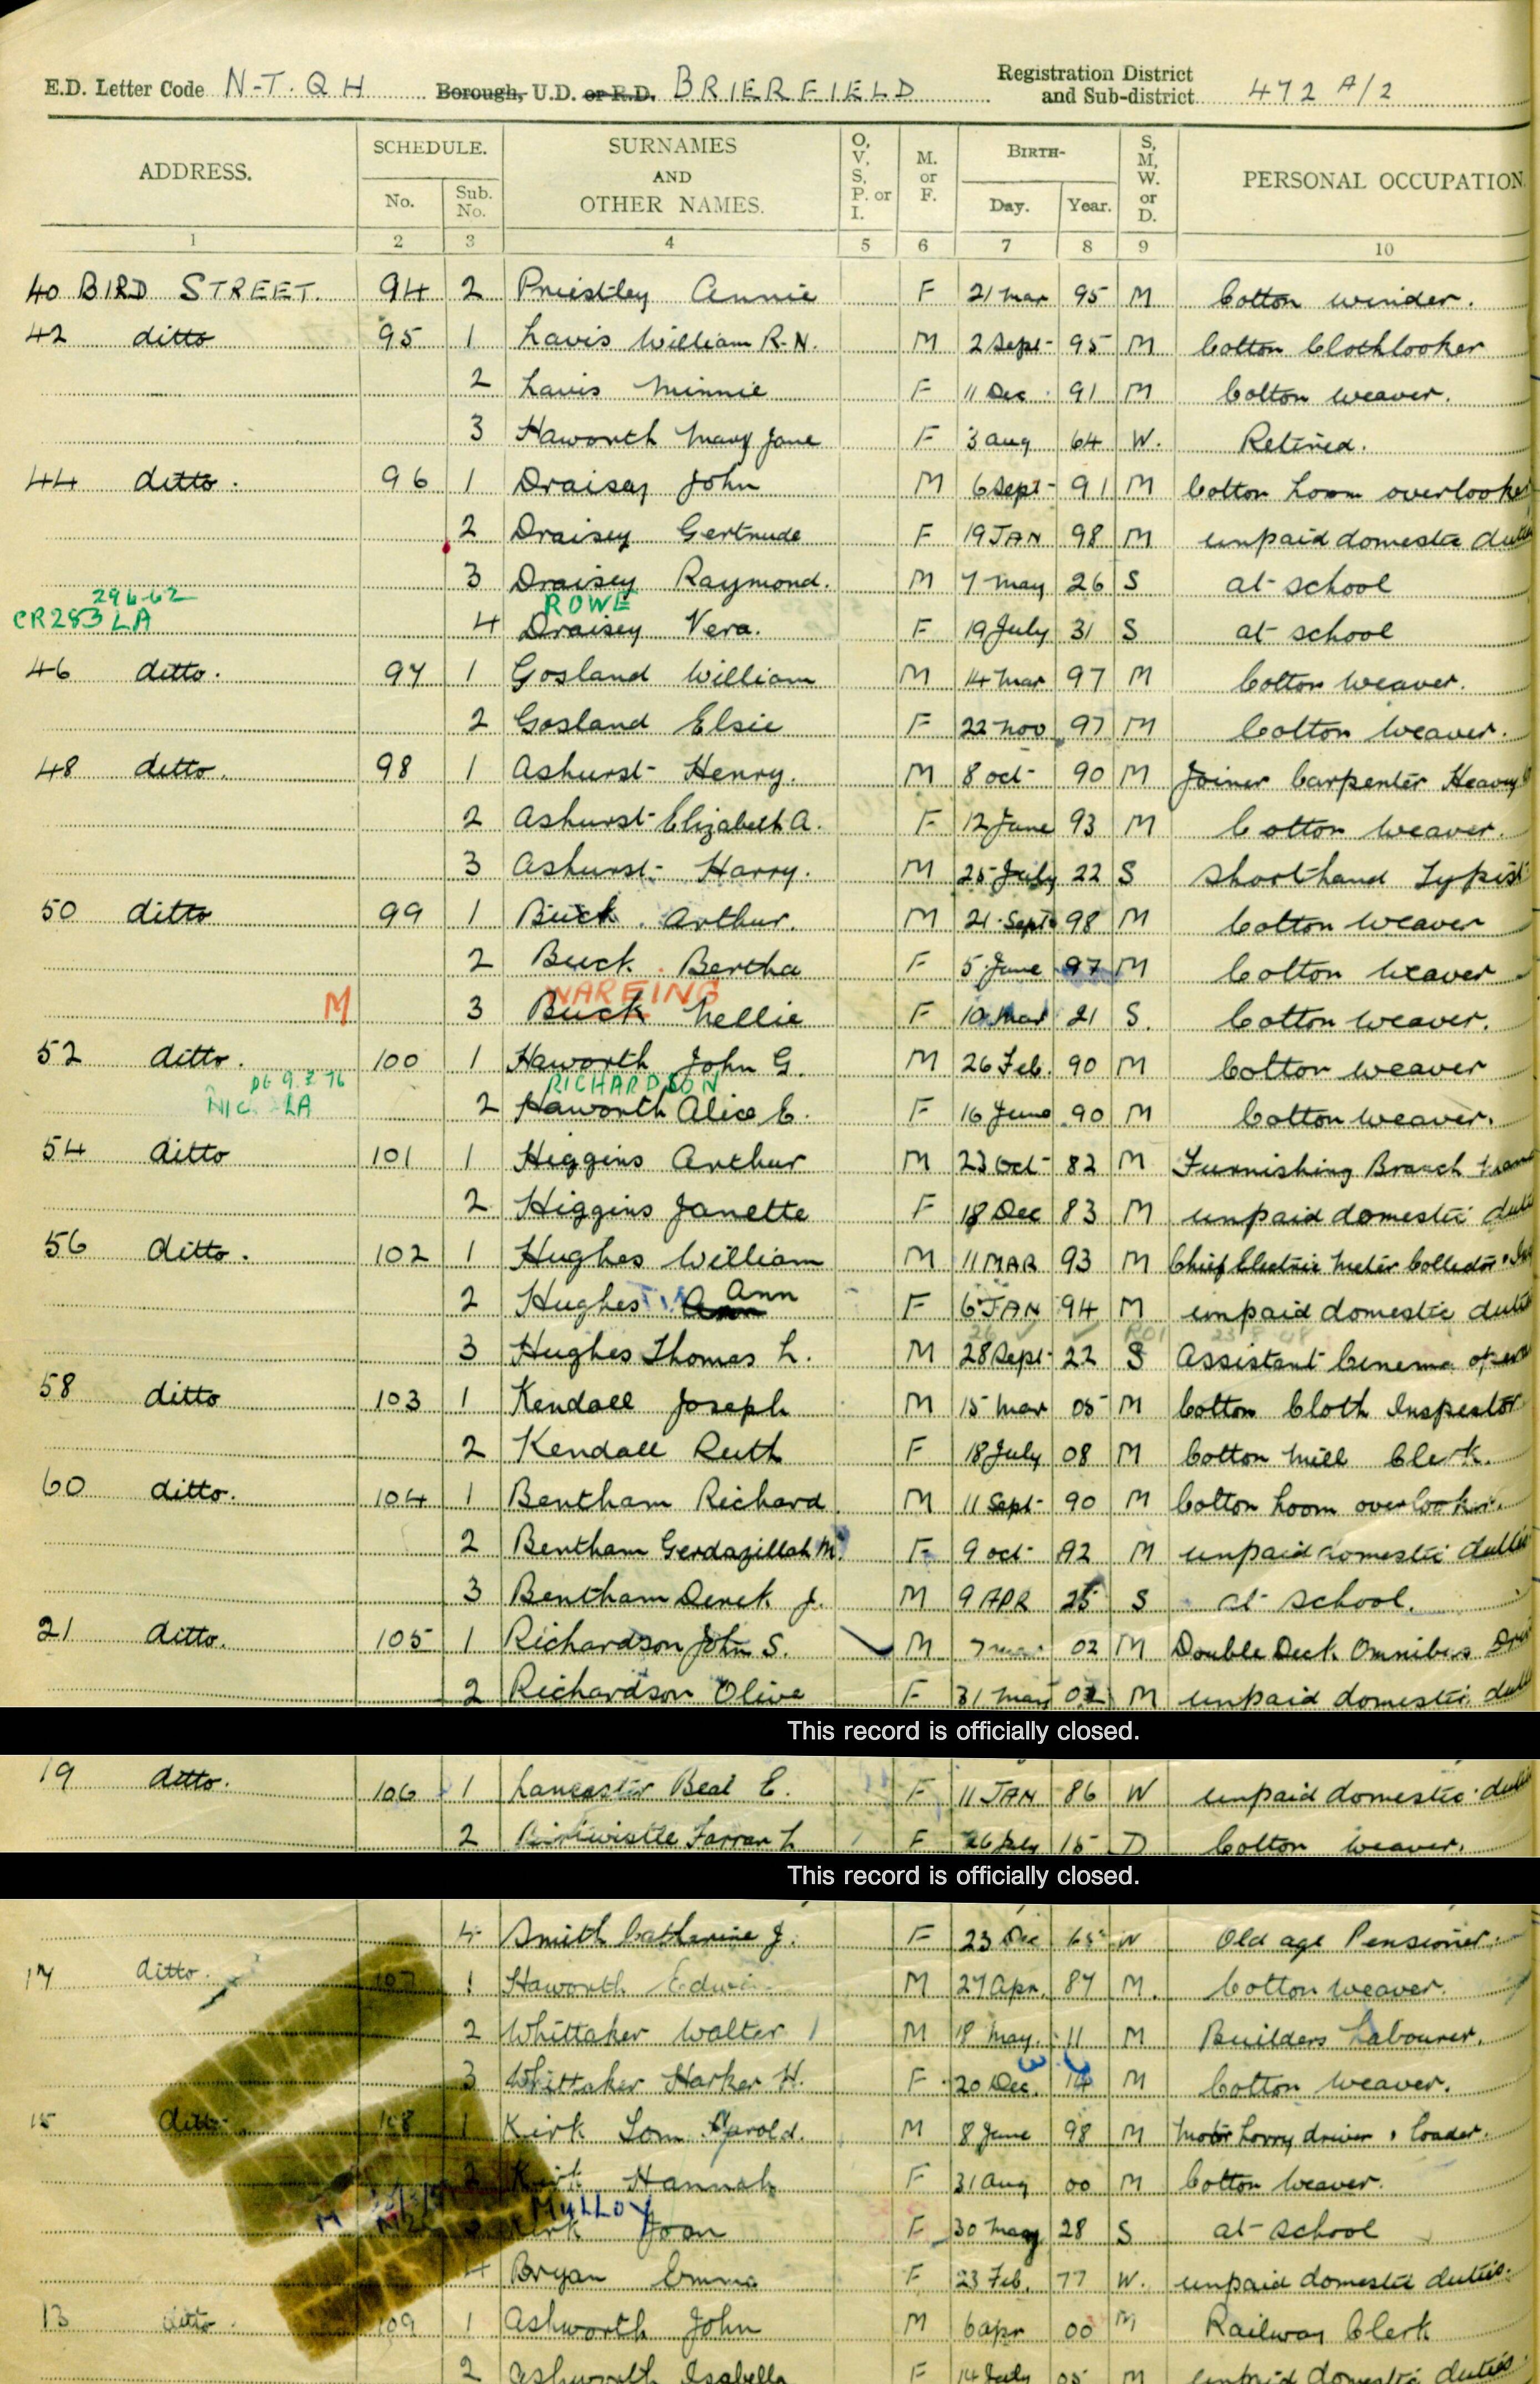 E.D. Letter Code N-T. Q H Borough, U.D. or R.D. BRIERFIELD Registration District and Sub-district 472 A/2
ADDRESS. SCHEDULE. No. Sub. No. SURNAMES AND OTHER NAMES. O, V, S, P. or I. M. or F. BIRTH- Day. Year. S, M, W. or D. PERSONAL OCCUPATION
1 2 3 4 5 6 7 8 9 10
40 BIRD STREET. 94 2 Priestley Annie F 21 Mar 95 M Cotton winder.
42 ditto 95 1 Lavis William R.N. M 2 Sept 95 M Cotton Clothlooker
2 Lavis Minnie F 11 Dec 91 M Cotton weaver.
3 Haworth Mary Jane F 3 Aug 64 W. Retired.
44 ditto. 96 1 Draisey John M 6 Sept 91 M Cotton Loom overlooker
2 Draisey Gertrude F 19 JAN 98 M unpaid domestic
3 Draisey Raymond. M 7 May 26 S at school
29 6 62 ROWE
CR283 LA 4 Draisey Vera. F 19 July 31 S at school
46 ditto. 97 1 Gosland William M 14 Mar 97 M Cotton weaver.
2 Gosland Elsie F 22 Nov 97 M Cotton weaver.
48 ditto. 98 1 Ashurst Henry. M 8 Oct 90 M Joiner Carpenter Heavy
2 Ashurst Elizabeth A. F 12 June 93 M Cotton weaver.
3 Ashurst Harry. M 25 July 22 S Shorthand Typist
50 ditto 99 1 Buck Arthur. M 21 Sept 98 M Cotton weaver
2 Buck Bertha F 5 June 97 M Cotton weaver
WAREING
M 3 Buck Nellie F 10 Mar 21 S. Cotton weaver.
52 ditto. 100 1 Haworth John G. M 26 Feb. 90 M Cotton weaver
RICHARDSON
LA 2 Haworth Alice E. F 16 June 90 M Cotton weaver.
54 ditto 101 1 Higgins Arthur M 23 Oct 82 M Furnishing Branch
2 Higgins Janette F 18 Dec 83 M unpaid domestic
56 ditto. 102 1 Hughes William M 11 MAR 93 M Chief Electric Meter Collector
2 Hughes Ann F 6 JAN 94 M unpaid domestic
3 Hughes Thomas L. M 28 Sept 22 S Assistant Cinema
58 ditto 103 1 Kendall Joseph M 15 Mar 05 M Cotton Cloth Inspector
2 Kendall Ruth F 18 July 08 M Cotton Mill Clerk.
60 ditto. 104 1 Bentham Richard M 11 Sept 90 M Cotton Loom overlooker.
2 Bentham Gerdazillah M. F 9 Oct 92 M unpaid domestic duties
3 Bentham Derek J. M 9 APR 25 S at school.
21 ditto. 105 1 Richardson John S. M 7 02 M Double Deck Omnibus
2 Richardson Olive F 31 M unpaid domestic
This record is officially closed.
19 ditto. 106 1 Lancaster Beat E. F 11 JAN 86 W unpaid domestic
2 Birtwistle Farrar L F 26 15 D Cotton weaver.
This record is officially closed.
4 Smith Catherine J. F 23 Dec 65 W Old age Pensioner.
17 ditto. 107 1 Haworth Edwin M 27 Apr. 87 M. Cotton weaver.
2 Whittaker Walter M 18 May. 11 M Builders Labourer.
3 Whittaker Harker H. F 20 Dec. 14 M Cotton weaver.
15 ditto 108 1 Kirk Tom Harold. M 8 June 98 M Motor Lorry driver & loader.
2 Kirk Hannah F 31 Aug 00 M Cotton weaver.
M MULLOY
3 Kirk Joan F 30 May 28 S at school
4 Bryan Emma F 23 Feb. 77 W. unpaid domestic duties.
13 ditto. 109 1 Ashworth John M 6 Apr 00 M Railway Clerk
2 Ashworth Isabella F 14 July 05 M unpaid domestic duties